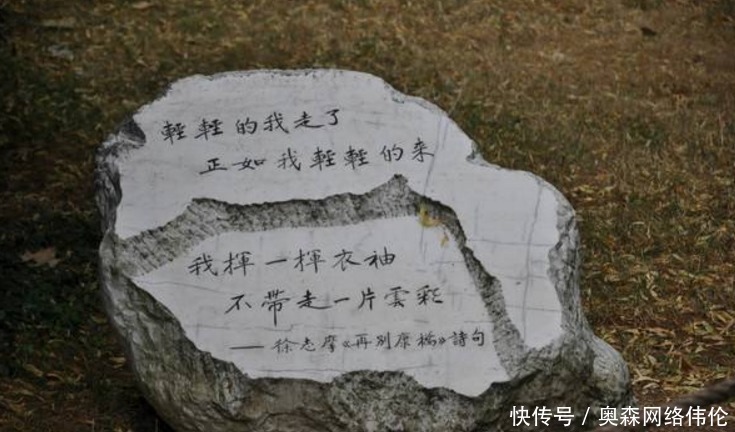 輕輕的我走了
正如我輕輕的来
我揮一揮衣袖
不帶走一片雲彩
——徐志摩《再别康橋》詩句
快传号／奥森网络伟伦